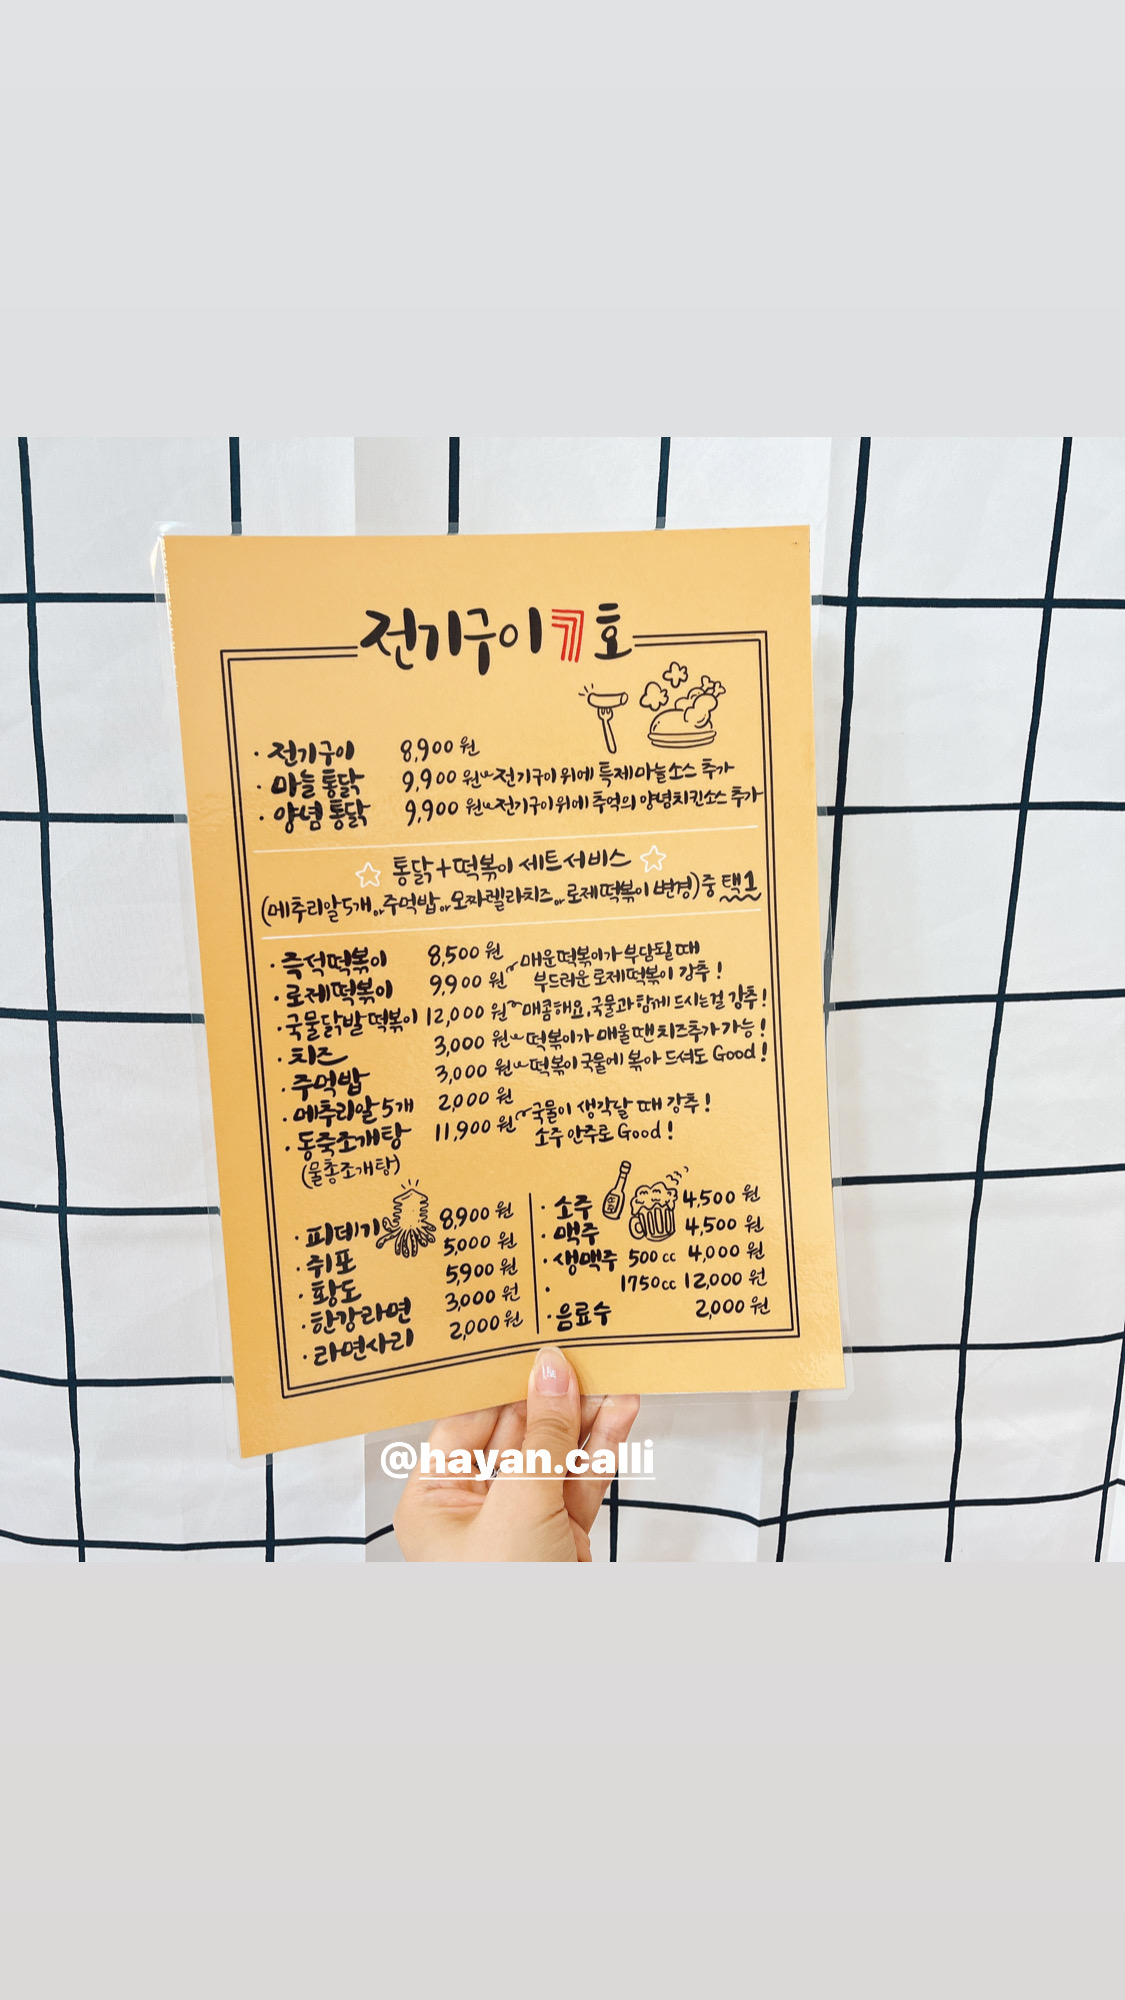 전기구이77호
· 전기구이 8,900 원
· 마늘통닭 9,900 원 전기구이 위에 특제마늘소스 추가
· 양념통닭 9,900 원 전기구이위에 추억의 양념치킨소스 추가
☆ 통닭+떡볶이 세트서비스 ☆
(메추리알5개 or 주먹밥 or 모짜렐라치즈 or 로제떡볶이 변경)중 택1
· 즉석떡볶이 8,500 원
· 로제떡볶이 9,900 원 매운떡볶이가 부담될 때
부드러운 로제떡볶이 강추!
· 국물닭발떡볶이 12,000 원 매콤해요, 국물과 함께 드시는걸 강추!
· 치즈 3,000 원 떡볶이가 매울땐 치즈추가 가능!
· 주먹밥 3,000 원 떡볶이 국물에 볶아 드셔도 Good!
· 메추리알 5개 2,000 원
· 동죽조개탕 11,900 원 국물이 생각날 때 강추!
(물총조개탕) 소주 안주로 Good!
· 피데기 8,900 원
· 쥐포 5,000 원
· 황도 5,900 원
· 한강라면 3,000 원
· 라면사리 2,000 원
· 소주 4,500 원
· 맥주 4,500 원
· 생맥주 500cc 4,000 원
· 1750cc 12,000 원
· 음료수 2,000 원
@hayan.calli